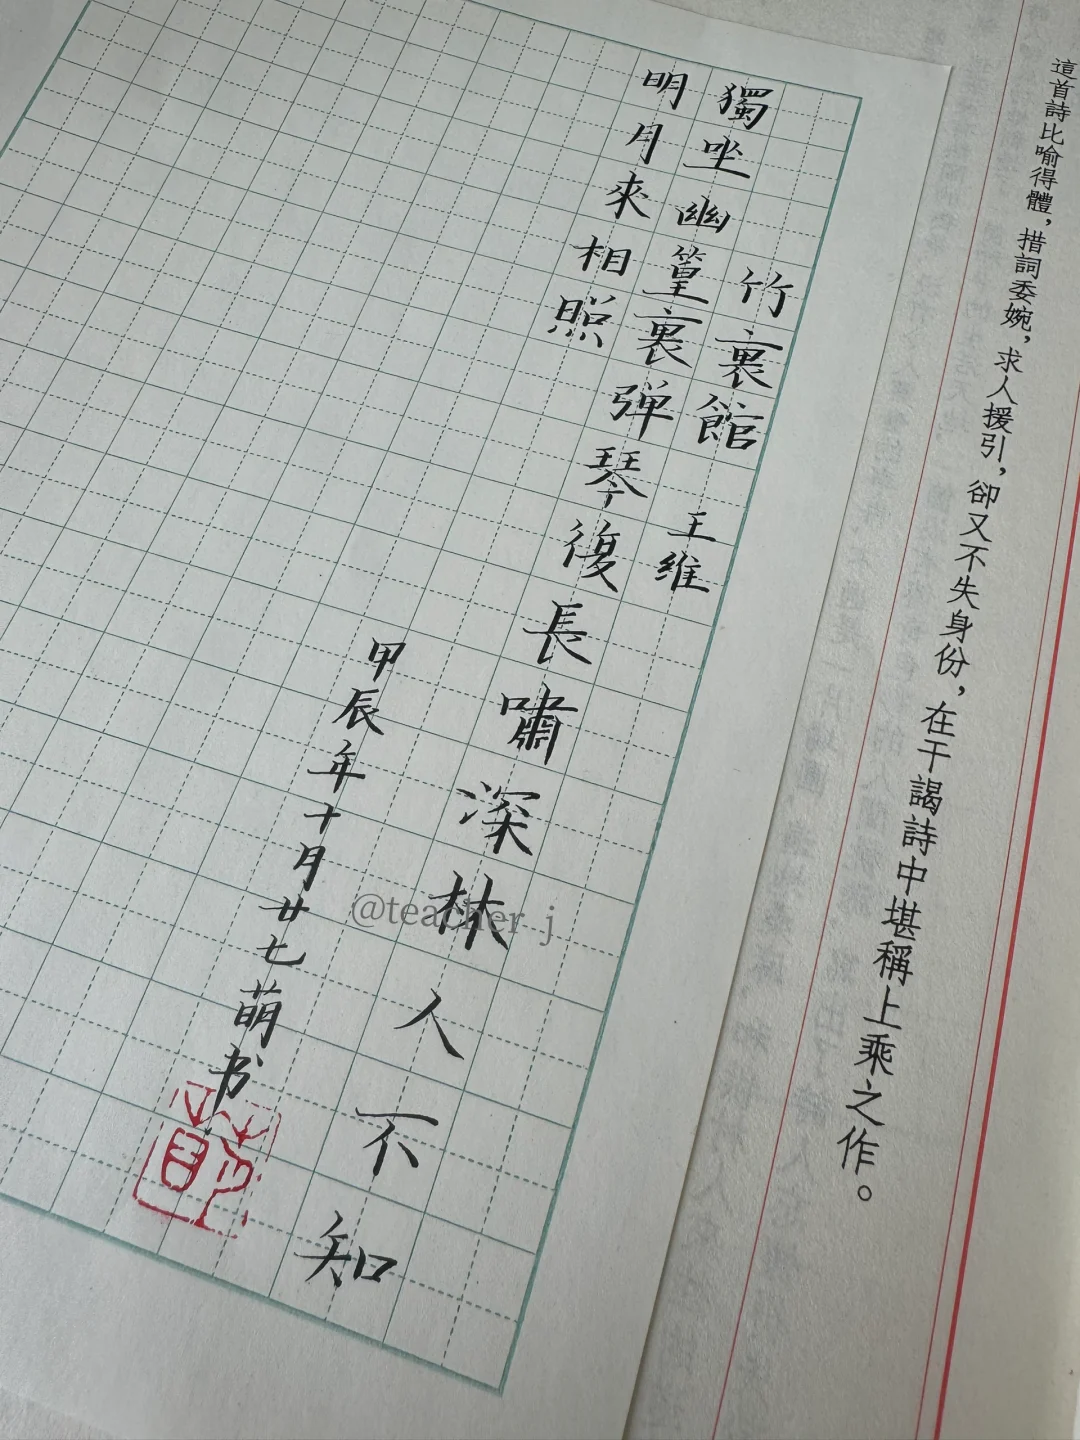 這首詩比喻得體，措詞委婉，求人援引，卻又不失身份，在干謁詩中堪稱上乘之作。
竹裏館 王维
獨坐幽篁裏弹琴復長嘯深林人不知
明月來相照
甲辰年十月廿七萌书
@teacher_j